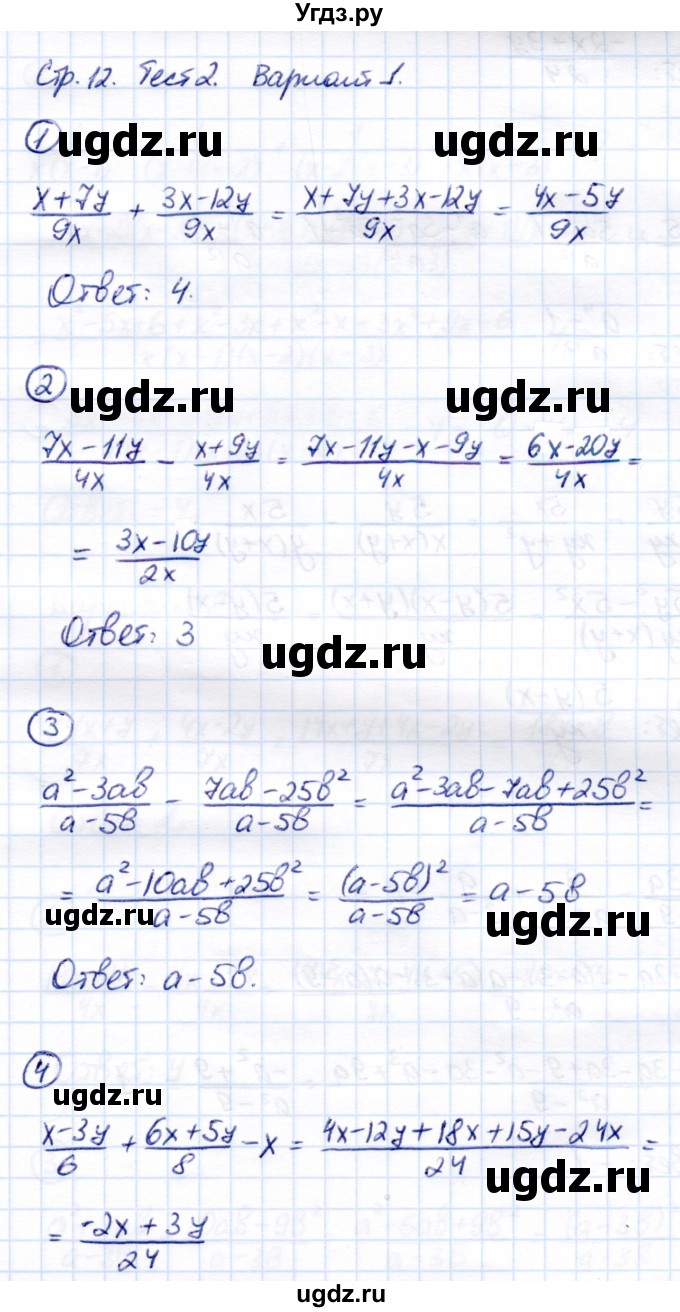 Угдз.ру
Стр. 12. Тест 2. Вариант 1.
1
ugdz.ru ugdz.ru
(x+7y)/(9x) + (3x-12y)/(9x) = (x+7y+3x-12y)/(9x) = (4x-5y)/(9x)
Ответ: 4.
2
ugdz.ru ugdz.ru
(7x-11y)/(4x) - (x+9y)/(4x) = (7x-11y-x-9y)/(4x) = (6x-20y)/(4x) =
= (3x-10y)/(2x)
Ответ: 3
ugdz.ru
3
(a²-3ab)/(a-5b) - (7ab-25b²)/(a-5b) = (a²-3ab-7ab+25b²)/(a-5b) =
= (a²-10ab+25b²)/(a-5b) = (a-5b)²/(a-5b) = a-5b
ugdz.ru ugdz.ru
Ответ: a-5b.
4
ugdz.ru
(x-3y)/6 + (6x+5y)/8 - x = (4x-12y+18x+15y-24x)/24 =
ugdz.ru
= (-2x+3y)/24
ugdz.ru
ugdz.ru